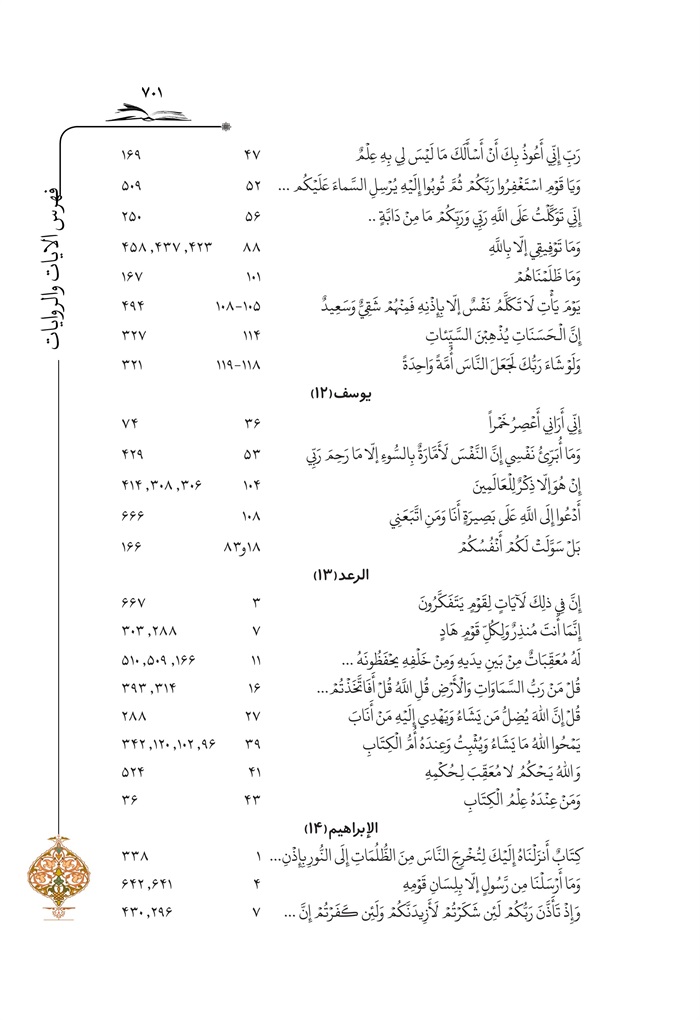 ۷۰۱
فهرس الآيات والروايات
رَبِّ إِنِّي أَعُوذُ بِكَ أَنْ أَسْأَلَكَ مَا لَيْسَ لِي بِهِ عِلْمٌ ۴۷ ۱۶۹
وَيَا قَوْمِ اسْتَغْفِرُوا رَبَّكُمْ ثُمَّ تُوبُوا إِلَيْهِ يُرْسِلِ السَّماءَ عَلَيْكُم ... ۵۲ ۵۰۹
إِنِّي تَوَكَّلْتُ عَلَى اللهِ رَبِّي وَرَبِّكُمْ مَا مِنْ دَابَّةٍ .. ۵۶ ۲۵۰
وَمَا تَوْفِيقِي إلّا بِاللَّهِ ۸۸ ۴۲۳, ۴۳۷, ۴۵۸
وَمَا ظَلَمْنَاهُمْ ۱۰۱ ۱۶۷
يَوْمَ يَأْتِ لَا تَكَلَّمُ نَفْسٌ إلّا بِإِذْنِهِ فَمِنْهُمْ شَقِيٌّ وَسَعِيدٌ ۱۰۵-۱۰۸ ۴۹۴
إِنَّ الْحَسَنَاتِ يُذْهِبْنَ السَّيِّئاتِ ۱۱۴ ۳۲۷
وَلَوْ شَاءَ رَبُّكَ لَجَعَلَ النَّاسَ أُمَّةً وَاحِدَةً ۱۱۸-۱۱۹ ۳۲۱
يوسف(۱۲)
إِنِّي أَرَانِي أَعْصِرُ خَمْراً ۳۶ ۷۴
وَمَا أُبَرِّئُ نَفْسِي إِنَّ النَّفْسَ لَأَمَّارَةٌ بِالسُّوءِ إلّا مَا رَحِمَ رَبِّي ۵۳ ۴۲۹
إِنْ هُوَ إلّا ذِكْرٌ لِلْعَالَمِينَ ۱۰۴ ۳۰۶, ۳۰۸, ۴۱۴
أَدْعُوا إِلَى اللَّهِ عَلَى بَصِيرَةٍ أَنَا وَمَنِ اتَّبَعَنِي ۱۰۸ ۶۶۶
بَلْ سَوَّلَتْ لَكُمْ أَنْفُسُكُمْ ۱۸و۸۳ ۱۶۶
الرعد(۱۳)
إِنَّ فِي ذلِكَ لَآيَاتٍ لِقَوْمٍ يَتَفَكَّرُونَ ۳ ۶۶۷
إِنَّمَا أَنتَ مُنذِرٌ وَلِكُلِّ قَوْمٍ هَادٍ ۷ ۲۸۸, ۳۰۳
لَهُ مُعَقِّبَاتٌ مِنْ بَينِ يَدَيهِ وَمِنْ خَلْفِهِ يحْفَظُونَهُ ... ۱۱ ۱۶۶, ۵۰۹, ۵۱۰
قُلْ مَنْ رَبُّ السَّمَاوَاتِ وَالْأَرْضِ قُلِ اللَّهُ قُلْ أَفَاتَّخَذْتُمْ... ۱۶ ۳۱۴, ۳۹۳
قُلْ إِنَّ اللهَ يُضِلُّ مَن يَشَاءُ وَيَهْدِي إِلَيْهِ مَنْ أَنَابَ ۲۷ ۲۸۸
يَمْحُوا اللهُ مَا يَشَاءُ وَيُثْبِتُ وَعِندَهُ أُمُّ الْكِتَابِ ۳۹ ۹۶, ۱۰۲, ۱۲۰, ۳۴۲
وَاللهُ يَحْكُمُ لا مُعَقِّبَ لِحُكْمِهِ ۴۱ ۵۲۴
وَمَنْ عِنْدَهُ عِلْمُ الْكِتَابِ ۴۳ ۳۶
الإبراهيم(۱۴)
كِتَابٌ أَنزَلْنَاهُ إِلَيْكَ لِتُخْرِجَ النَّاسَ مِنَ الظُّلُمَاتِ إِلَى النُّورِ بِإِذْنِ... ۱ ۳۳۸
وَمَا أَرْسَلْنَا مِن رَّسُولٍ إلّا بِلِسَانِ قَوْمِهِ ۴ ۶۴۱, ۶۴۲
وَإِذْ تَأَذَّنَ رَبُّكُمْ لَئِن شَكَرْتُمْ لَأَزِيدَنَّكُمْ وَلَئِن كَفَرْتُمْ إِنَّ ... ۷ ۲۹۶, ۴۳۰